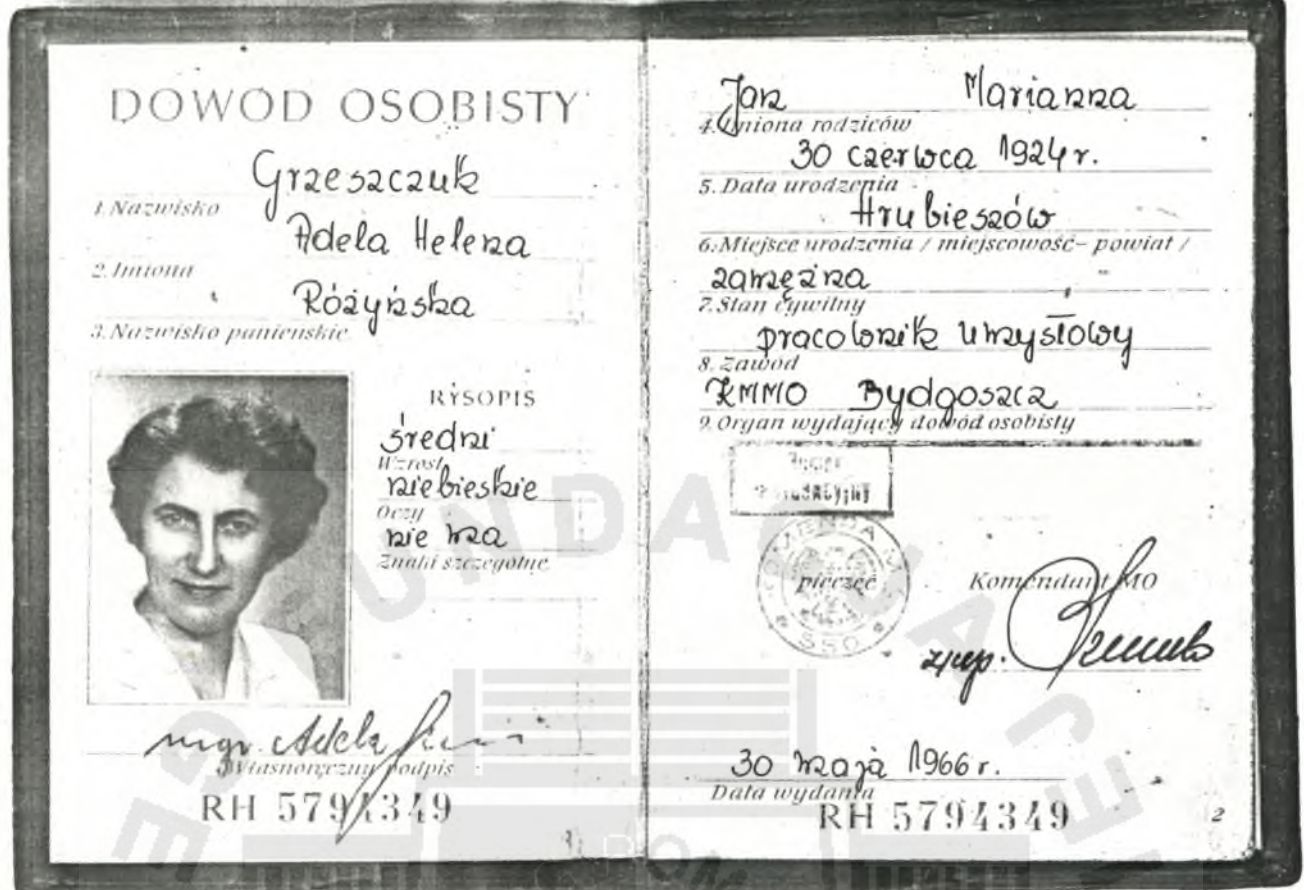 DOWÓD OSOBISTY
Grzeszczuk
1. Nazwisko
Adela Helena
2. Imiona
Różyńska
3. Nazwisko panieńskie
RYSOPIS
średni
Wzrost
niebieskie
Oczy
nie ma
Znaki szczególne
mgr. Adela
Własnoręczny podpis
RH 5794349
Jan Marianna
4. Imiona rodziców
30 czerwca 1924 r.
5. Data urodzenia
Hrubieszów
6. Miejsce urodzenia / miejscowość – powiat /
zamężna
7. Stan cywilny
pracownik umysłowy
8. Zawód
KMMO Bydgoszcz
9. Organ wydający dowód osobisty
pieczęć
Komendant MO
30 maja 1966 r.
Data wydania
RH 5794349
2